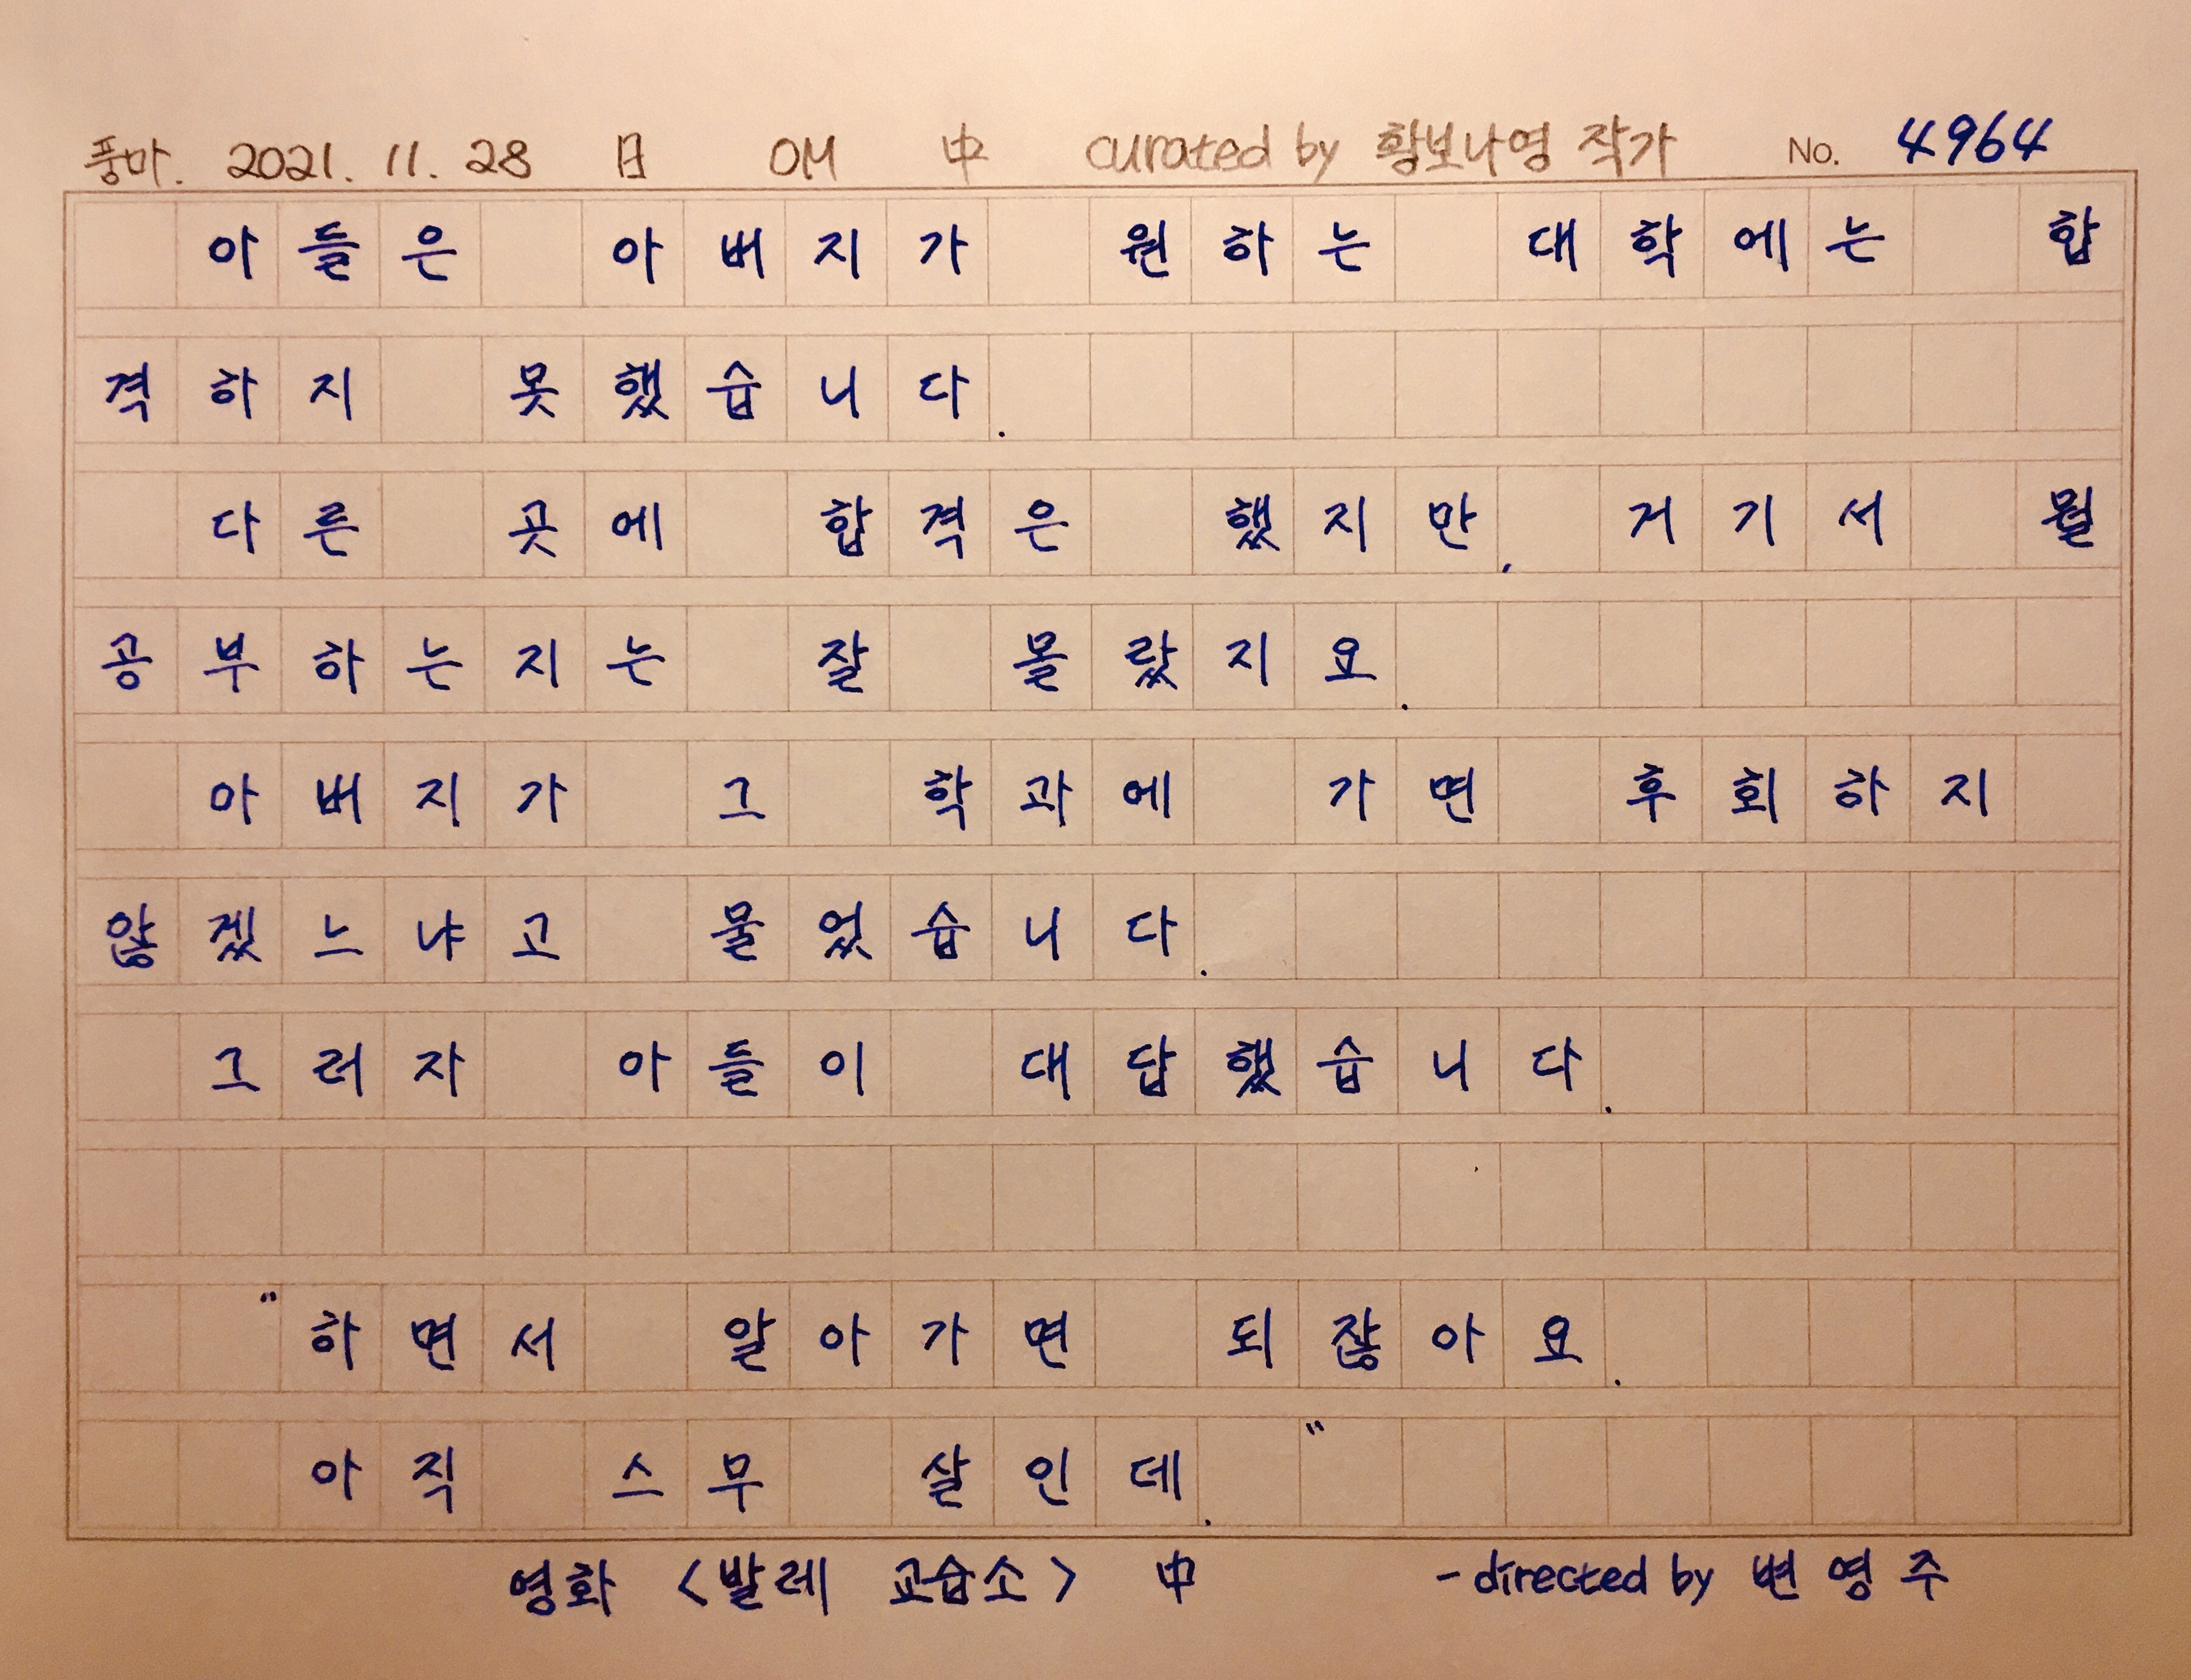 풍마. 2021. 11. 28 日 OM 中 curated by 황보나영 작가 No. 4964
아들은 아버지가 원하는 대학에는 합
격하지 못했습니다.
다른 곳에 합격은 했지만, 거기서 뭘
공부하는지는 잘 몰랐지요.
아버지가 그 학과에 가면 후회하지
않겠느냐고 물었습니다.
그러자 아들이 대답했습니다.
"하면서 알아가면 되잖아요.
아직 스무 살인데."
영화 <발레 교습소> 中 - directed by 변영주